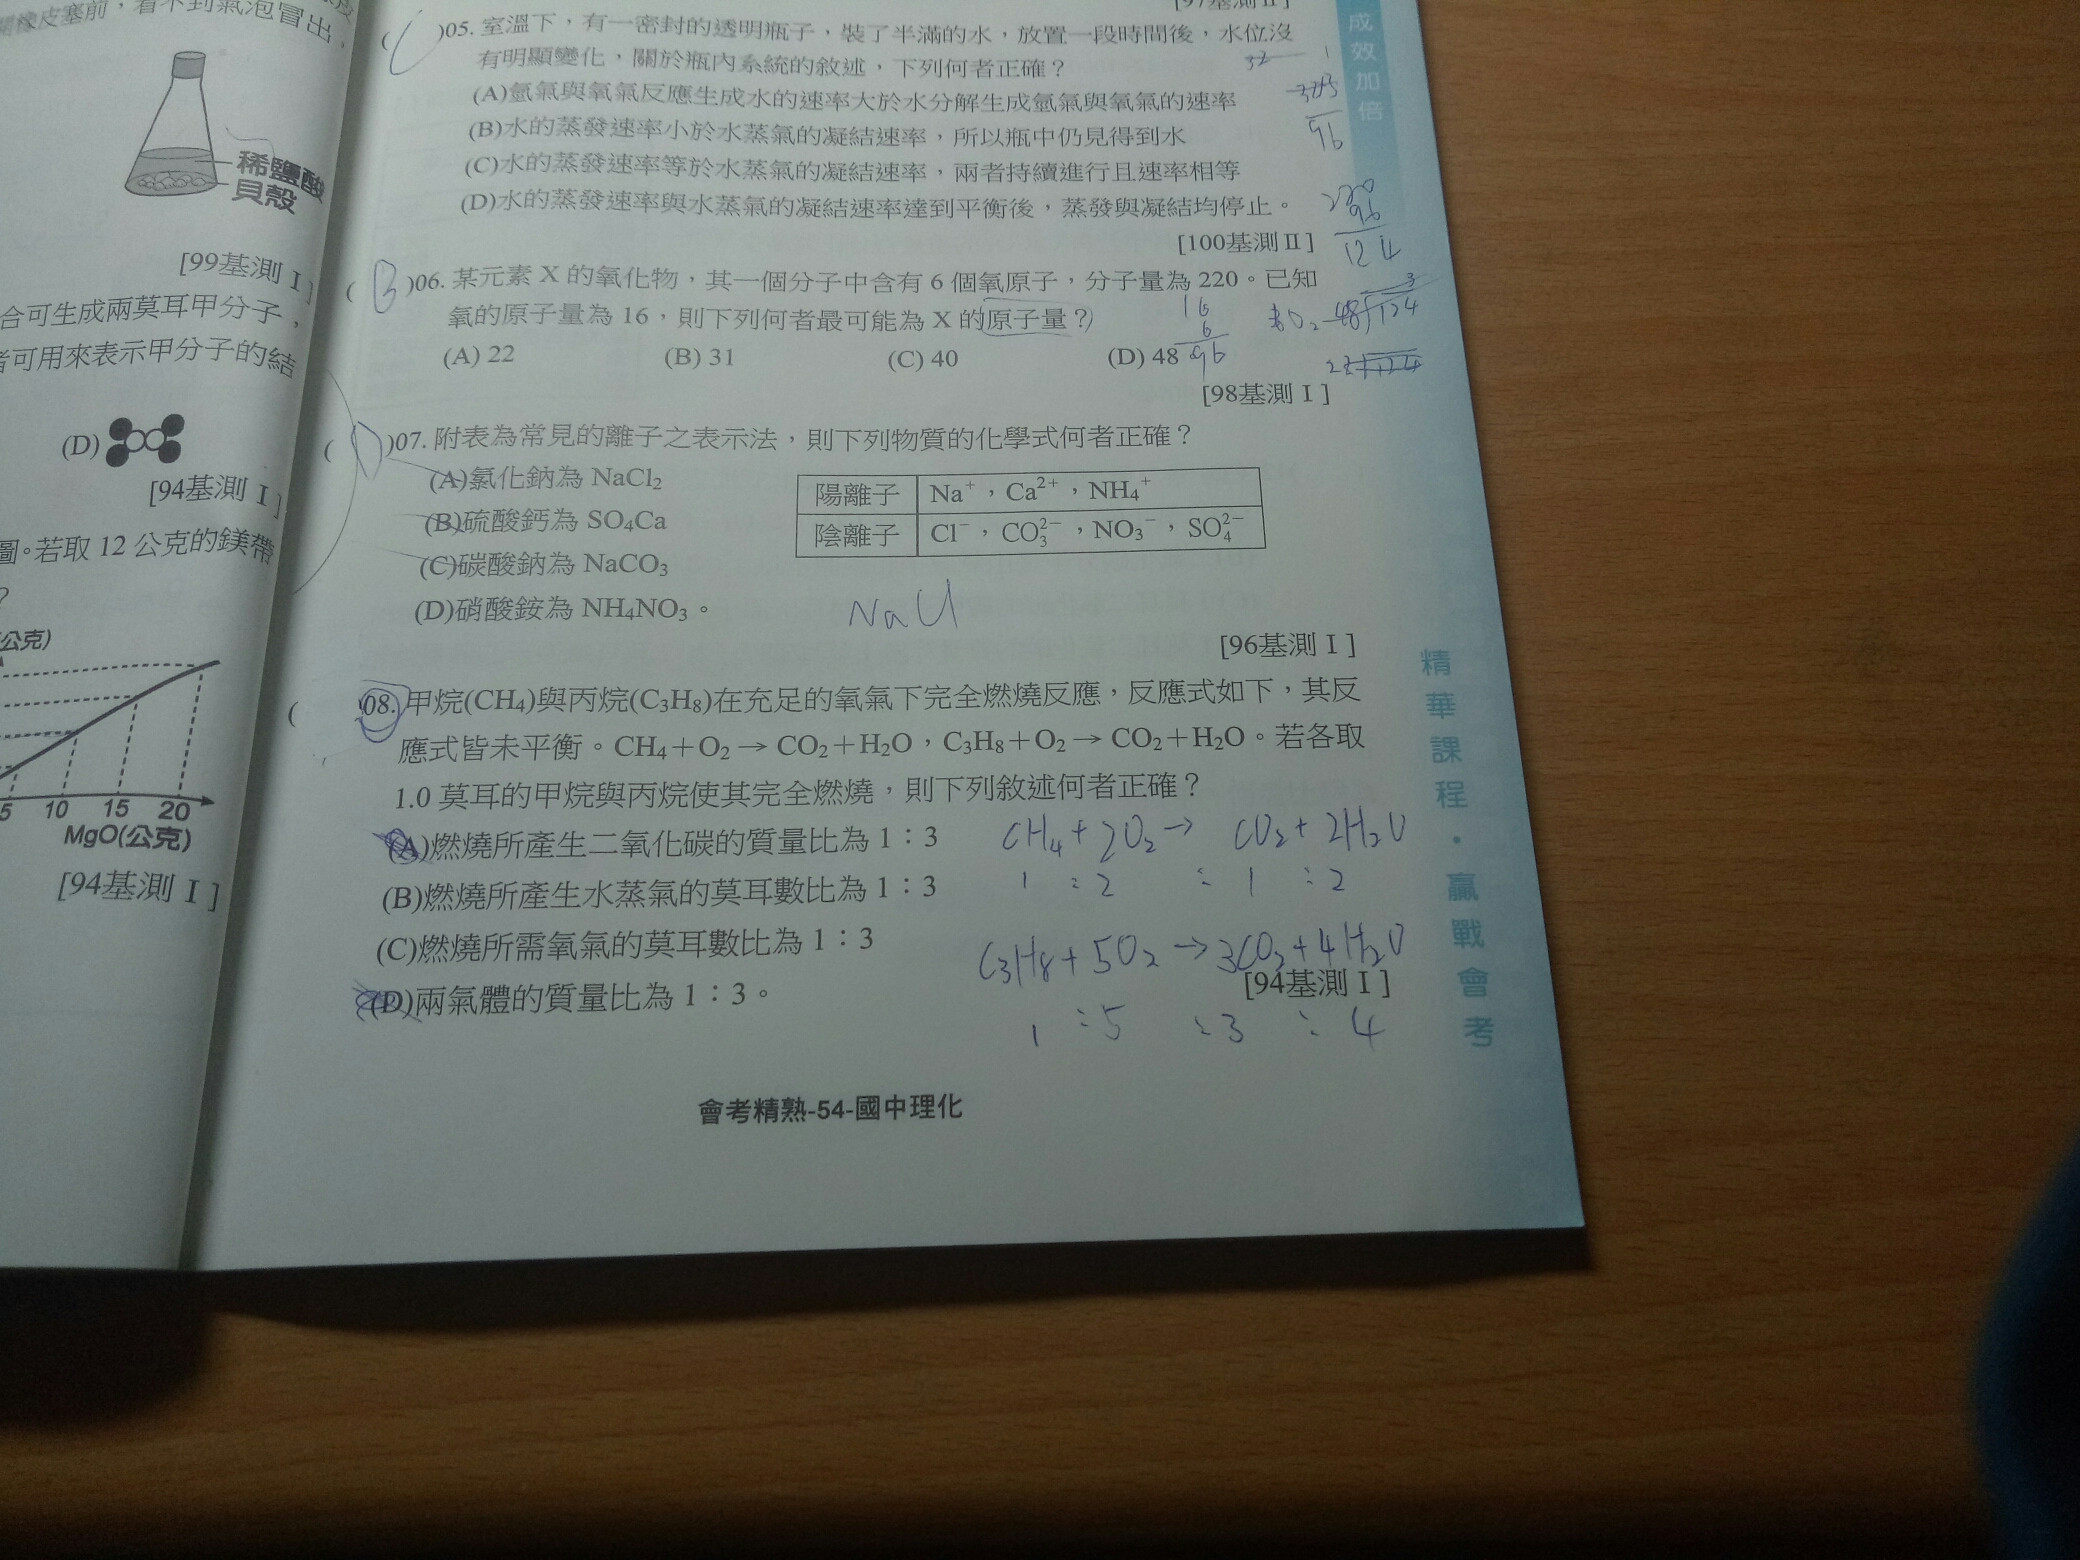 開橡皮塞前，看不到氣泡冒出，
稀鹽酸
貝殼
[99基測Ⅰ]
合可生成兩莫耳甲分子，
者可用來表示甲分子的結
(D)
[94基測Ⅰ]
圖。若取 12 公克的鎂帶
?
公克)
5 10 15 20
MgO(公克)
[94基測Ⅰ]
[97基測Ⅱ]
( C )05. 室溫下，有一密封的透明瓶子，裝了半滿的水，放置一段時間後，水位沒
有明顯變化，關於瓶內系統的敘述，下列何者正確？
(A)氫氣與氧氣反應生成水的速率大於水分解生成氫氣與氧氣的速率
(B)水的蒸發速率小於水蒸氣的凝結速率，所以瓶中仍見得到水
(C)水的蒸發速率等於水蒸氣的凝結速率，兩者持續進行且速率相等
(D)水的蒸發速率與水蒸氣的凝結速率達到平衡後，蒸發與凝結均停止。
[100基測Ⅱ]
32
96
220
96
124
( B )06. 某元素 X 的氧化物，其一個分子中含有 6 個氧原子，分子量為 220。已知
氧的原子量為 16，則下列何者最可能為 X 的原子量？
(A) 22 (B) 31 (C) 40 (D) 48
16
6
96
3
48 124
[98基測Ⅰ]
( D )07. 附表為常見的離子之表示法，則下列物質的化學式何者正確？
(A)氯化鈉為 NaCl₂
(B)硫酸鈣為 SO₄Ca
(C)碳酸鈉為 NaCO₃
(D)硝酸銨為 NH₄NO₃。
陽離子 Na⁺，Ca²⁺，NH₄⁺
陰離子 Cl⁻，CO₃²⁻，NO₃⁻，SO₄²⁻
NaCl
[96基測Ⅰ]
( 08. 甲烷(CH₄)與丙烷(C₃H₈)在充足的氧氣下完全燃燒反應，反應式如下，其反
應式皆未平衡。CH₄＋O₂→CO₂＋H₂O，C₃H₈＋O₂→CO₂＋H₂O。若各取
1.0 莫耳的甲烷與丙烷使其完全燃燒，則下列敘述何者正確？
(A)燃燒所產生二氧化碳的質量比為 1：3
(B)燃燒所產生水蒸氣的莫耳數比為 1：3
(C)燃燒所需氧氣的莫耳數比為 1：3
(D)兩氣體的質量比為 1：3。
CH₄+2O₂→ CO₂+2H₂O
1 : 2 : 1 : 2
C₃H₈+5O₂→3CO₂+4H₂O
[94基測Ⅰ]
1 : 5 : 3 : 4
會考精熟-54-國中理化
成效加倍
精華課程・贏戰會考